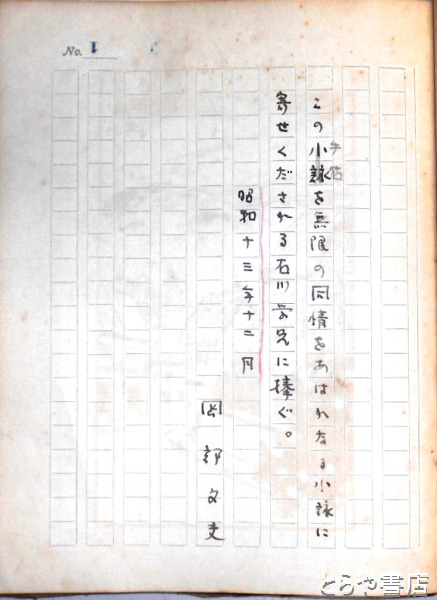 No. 1
この小詠を無限の同情をあはれなる小詠に
手帖
寄せくださる石川学兄に捧ぐ。
昭和十三年十二月
岡部文夫
とらや書店